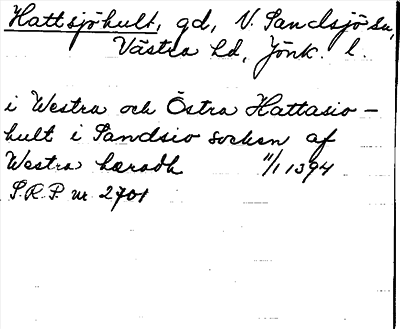 Hattsjöhult, gd, N. Sandsjö sn,
Västra hd, Jönk. l.
i Westra och Östra Hattasio-
hult i Sandsio socken af
Westra hæradh 11/1 1394
S.R.P. nr 2701